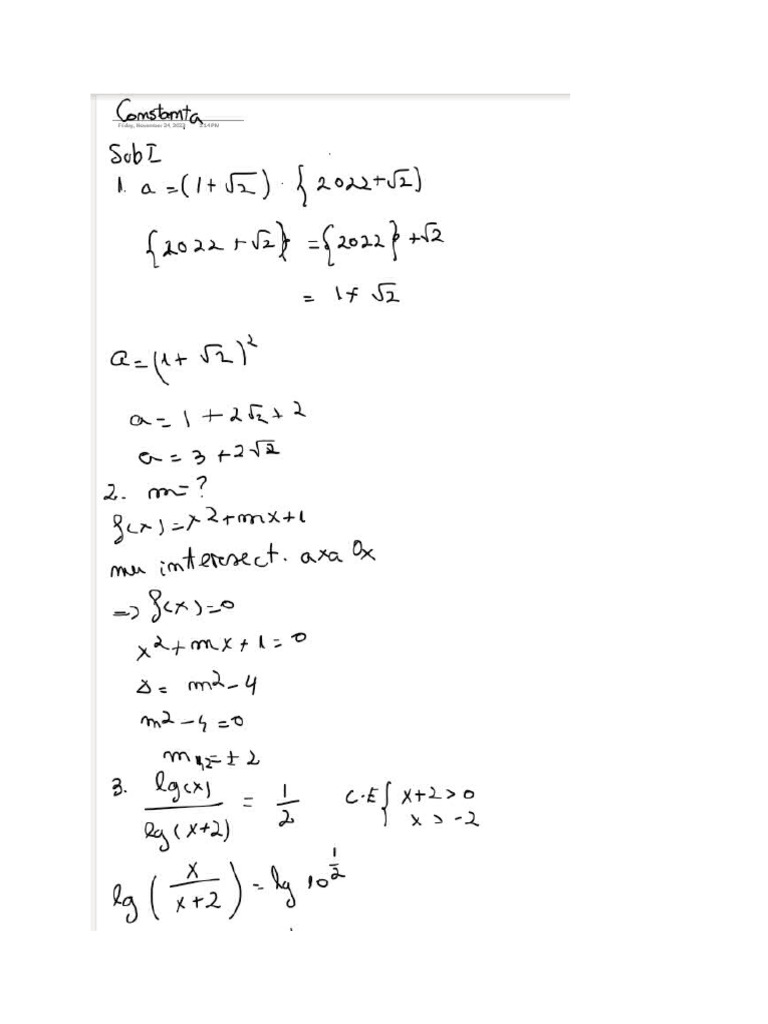 Constamta
Friday, November 24, 2023 2:14 PM
Sub I
1. a = (1 + √2) · {2022 + √2}
{2022 + √2} = {2022} + √2
= 1 + √2
a = (1 + √2)²
a = 1 + 2√2 + 2
a = 3 + 2√2
2. m = ?
f(x) = x² + mx + 1
nu intersect. axa Ox
=> f(x) = 0
x² + mx + 1 = 0
Δ = m² - 4
m² - 4 = 0
m₁,₂ = ± 2
3. lg(x) / lg(x+2) = 1/2 C.E { x + 2 > 0
x > -2
lg (x / (x+2)) = lg 10^(1/2)